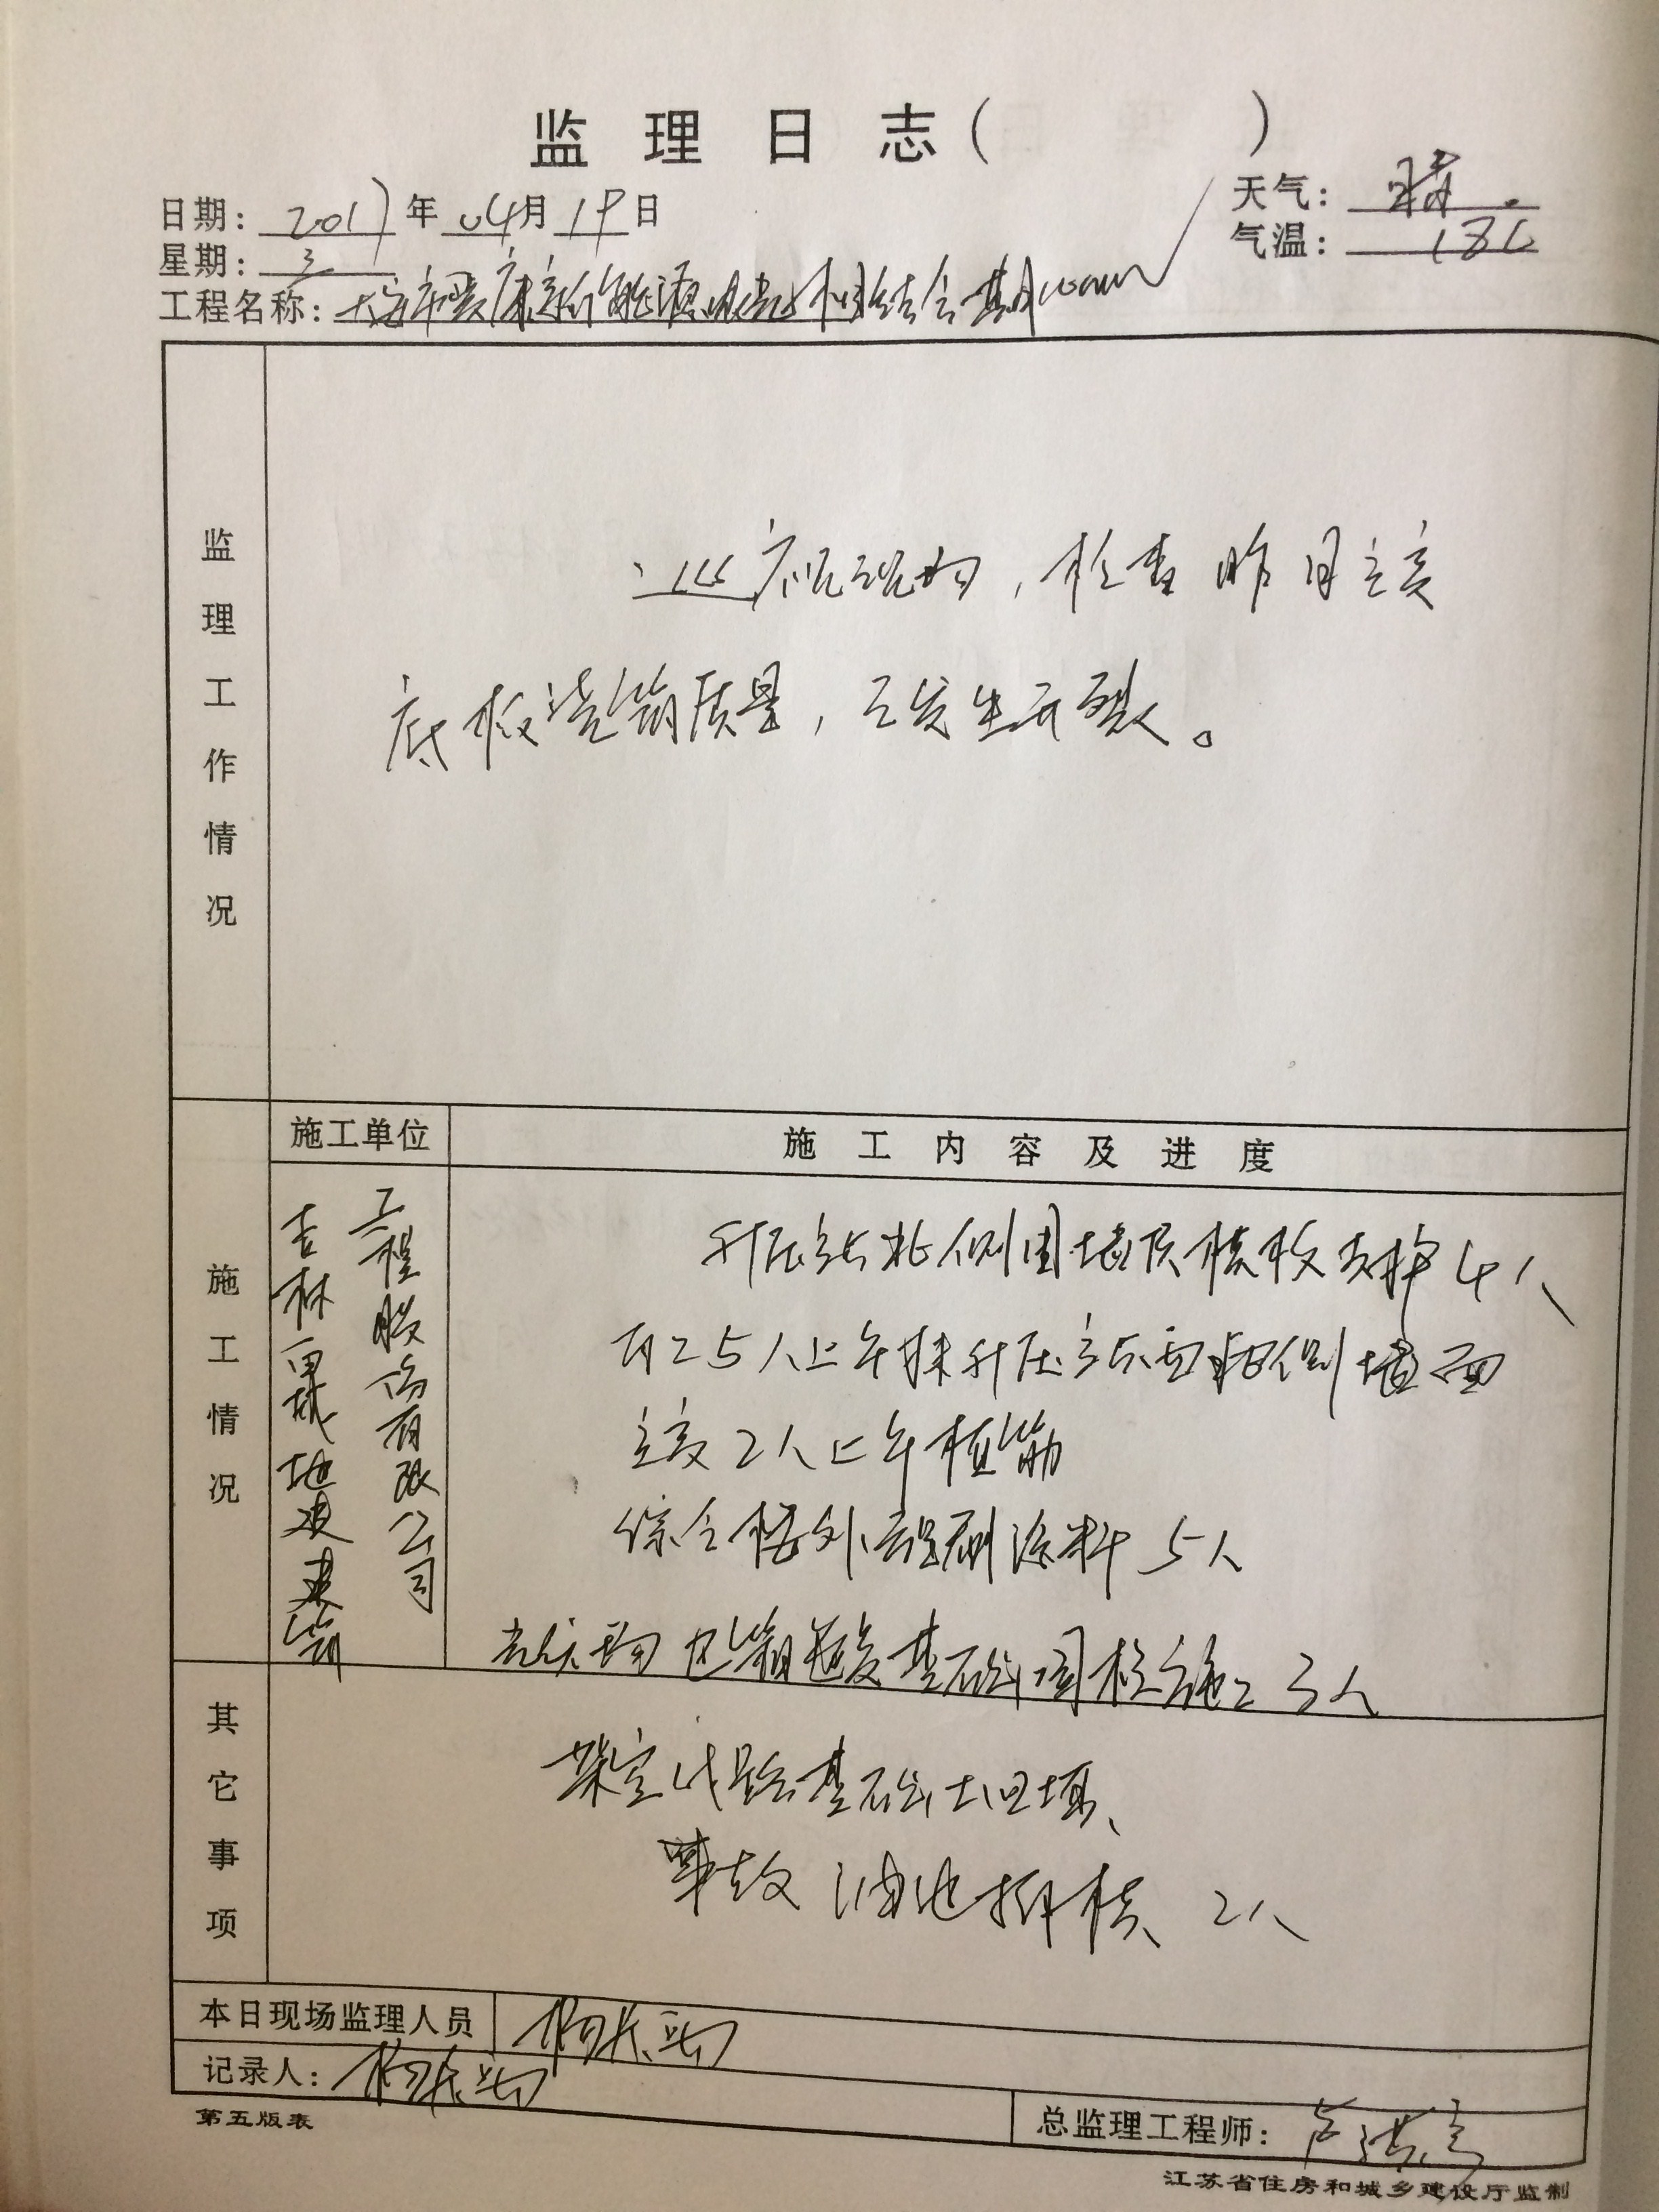 监理日志(          )
日期: 2017年 04月 19日
天气: 晴.
星期: 三
气温: 18℃
工程名称: 大安市 康 新能源
监理工作情况
巡视现场,检查昨日主变
底板浇筑质量,已发生开裂。
施工情况
施工单位
施工内容及进度
吉林 建筑
工程股份有限公司
升压站北侧围墙顶模板支撑 4人
上午抹升压站西 侧墙面
主变2人上午植筋
综合楼外 刷涂料 5人
光伏场 箱 基础 施工 3人
其它事项
基础土回填、
事故油池拆模 2人
本日现场监理人员 杨
记录人: 杨
总监理工程师:
第五版表
江苏省住房和城乡建设厅监制